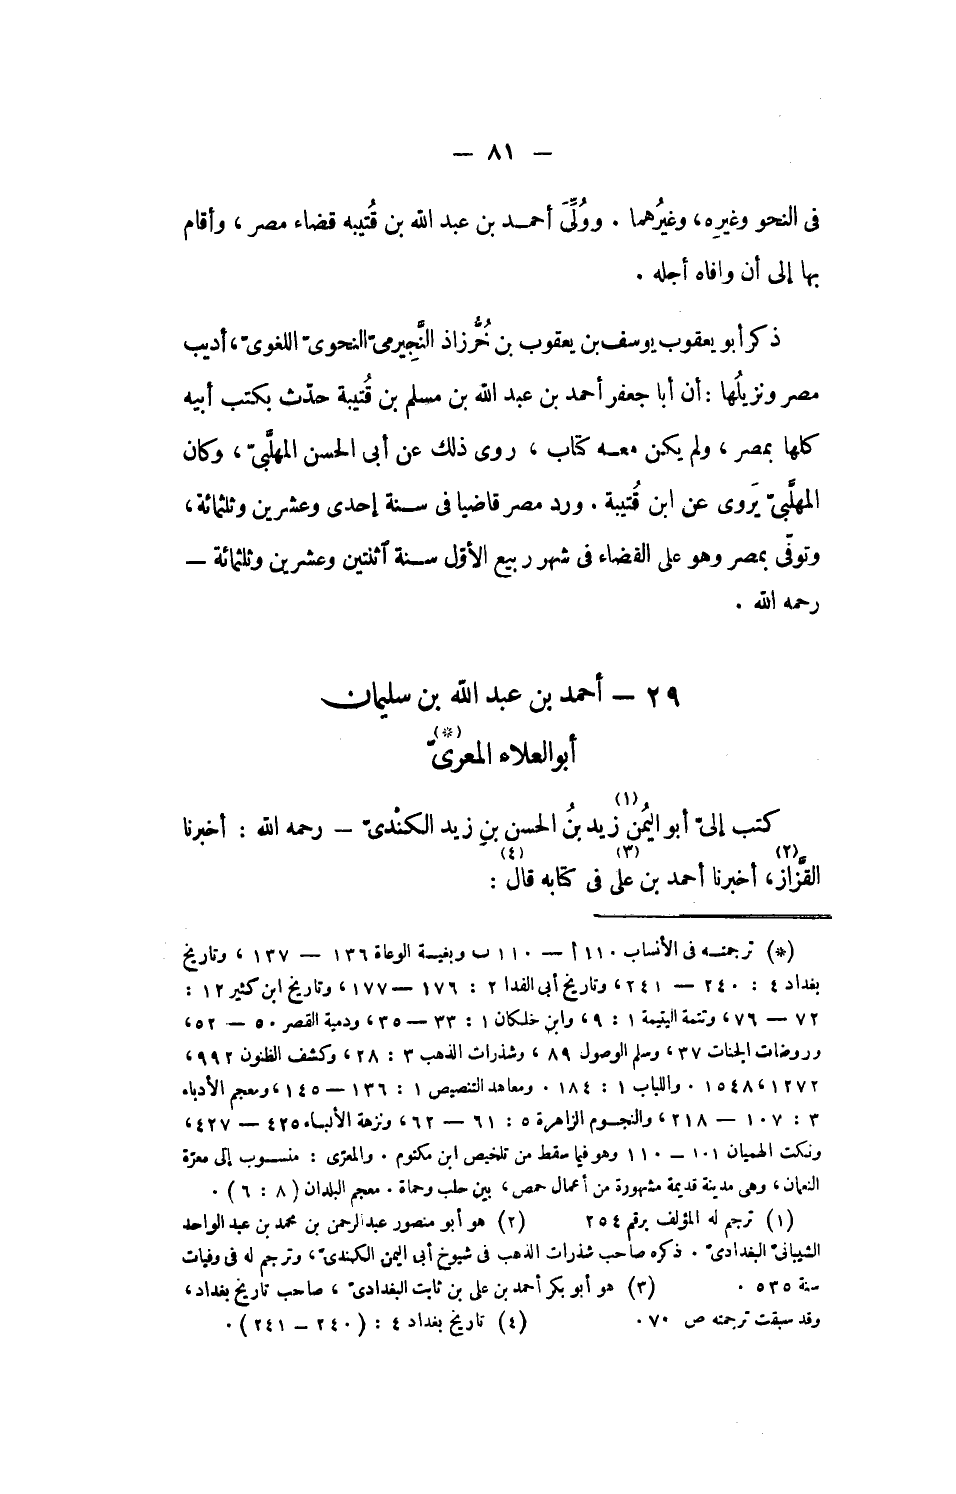 — ٨١ —
فى النحو وغيرِه، وغيرُهما . ووُلِّىَ أحمـد بن عبد الله بن قُتيبه قضاء مصر ، وأقام
بها إلى أن وافاه أجله .
ذكر أبو يعقوب يوسف بن يعقوب بن خُرَّزاذ النَّجِيرمىّ النحوىّ اللغوىّ، أديب
مصر ونزيلُها : أن أبا جعفر أحمد بن عبد الله بن مسلم بن قُتيبة حدّث بكتب أبيه
كلها بمصر ، ولم يكن معـه كتاب ، روى ذلك عن أبى الحسن المهلَّبىّ ، وكان
المهلَّبىّ يَروى عن ابن قُتيبة . ورد مصر قاضيا فى سـنة إحدى وعشرين وثلثمائة ،
وتوفّى بمصر وهو على القضاء فى شهر ربيع الأوّل سـنة اثنتين وعشرين وثلثمائة —
رحمه الله .
٢٩ — أحمد بن عبد الله بن سليمان
أبو العلاء المعرىّ (*)
كتب إلىّ أبو اليُمْن (١) زيد بنُ الحسن بنِ زيد الكنْدىّ — رحمه الله : أخبرنا
القزَّاز (٢)، أخبرنا أحمد بن على (٣) فى كتابه قال (٤) :
(*) ترجمتـه فى الأنساب ١١٠ أ — ١١٠ ب وبغيـة الوعاة ١٣٦ — ١٣٧ ، وتاريخ
بغداد ٤ : ٢٤٠ — ٢٤١ ، وتاريخ أبى الفدا ٢ : ١٧٦ — ١٧٧ ، وتاريخ ابن كثير ١٢ :
٧٢ — ٧٦ ، وتتمة اليتيمة ١ : ٩ ، وابن خلكان ١ : ٣٣ — ٣٥ ، ودمية القصر ٥٠ — ٥٢ ،
وروضات الجنات ٧٣ ، وسلم الوصول ٨٩ ، وشذرات الذهب ٣ : ٢٨ ، وكشف الظنون ٩٩٢ ،
١٢٧٢ ، ١٥٤٨ . واللباب ١ : ١٨٤ . ومعاهد التنصيص ١ : ١٣٦ — ١٤٥ ، ومعجم الأدباء
٣ : ١٠٧ — ٢١٨ ، والنجـوم الزاهرة ٥ : ٦١ — ٦٢ ، ونزهة الألبـاء ٤٢٥ — ٤٢٧ ،
ونكت الهميان ١٠١ — ١١٠ وهو فيما سقط من تلخيص ابن مكتوم . والمعرّى : منسـوب إلى معرّة
النعمان ، وهى مدينة قديمة مشهورة من أعمال حمص ، بين حلب وحماة . معجم البلدان ( ٨ : ٦ ) .
(١) ترجم له المؤلف برقم ٢٥٤ (٢) هو أبو منصور عبدالرحمن بن محمد بن عبد الواحد
الشيبانىّ البغدادىّ . ذكره صاحب شذرات الذهب فى شيوخ أبى اليمن الكندىّ ، وترجم له فى وفيات
سنة ٥٣٥ . (٣) هو أبو بكر أحمد بن على بن ثابت البغدادىّ ، صاحب تاريخ بغداد ،
وقد سبقت ترجمته ص ٧٠ . (٤) تاريخ بغداد ٤ : ( ٢٤٠ — ٢٤١ ) .